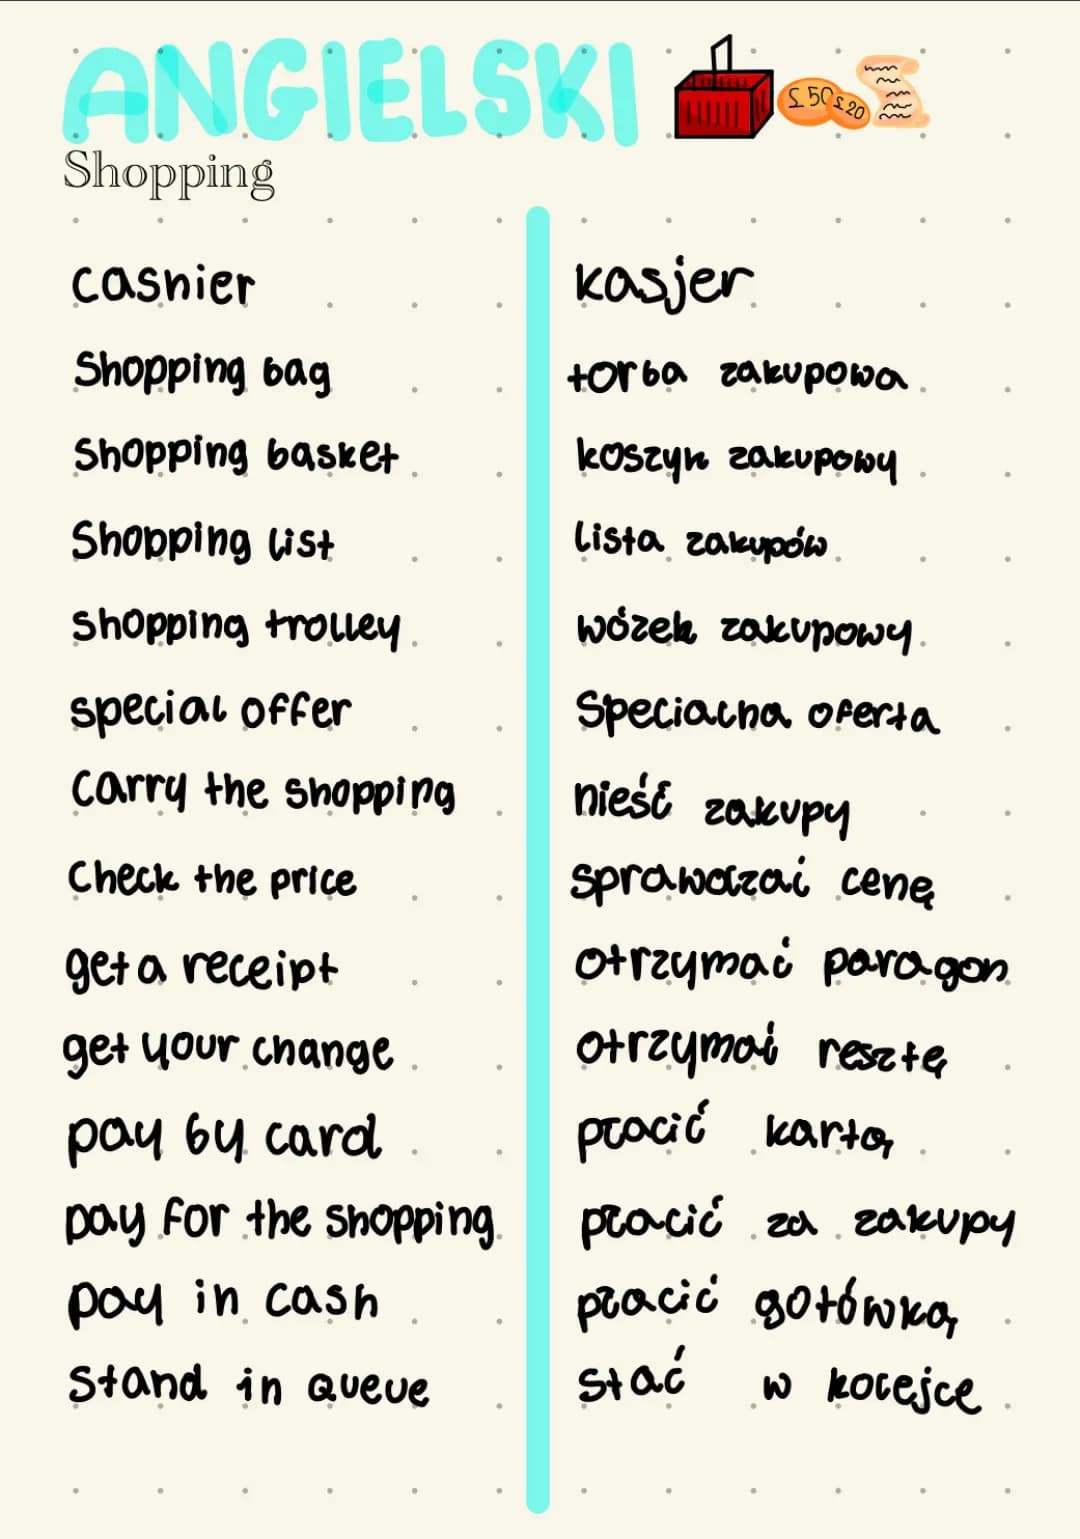 ANGIELSKI
£ 50 £ 20
Shopping
cashier kasjer
Shopping bag torba zakupowa
Shopping basket koszyk zakupowy
Shopping list lista zakupów
shopping trolley wózek zakupowy
special offer Specialna oferta
Carry the shopping nieść zakupy
Check the price sprawdzać cenę
get a receipt otrzymać paragon
get your change otrzymać resztę
pay by card płacić kartą
pay for the shopping płacić za zakupy
pay in cash płacić gotówką
Stand in queue stać w kolejce